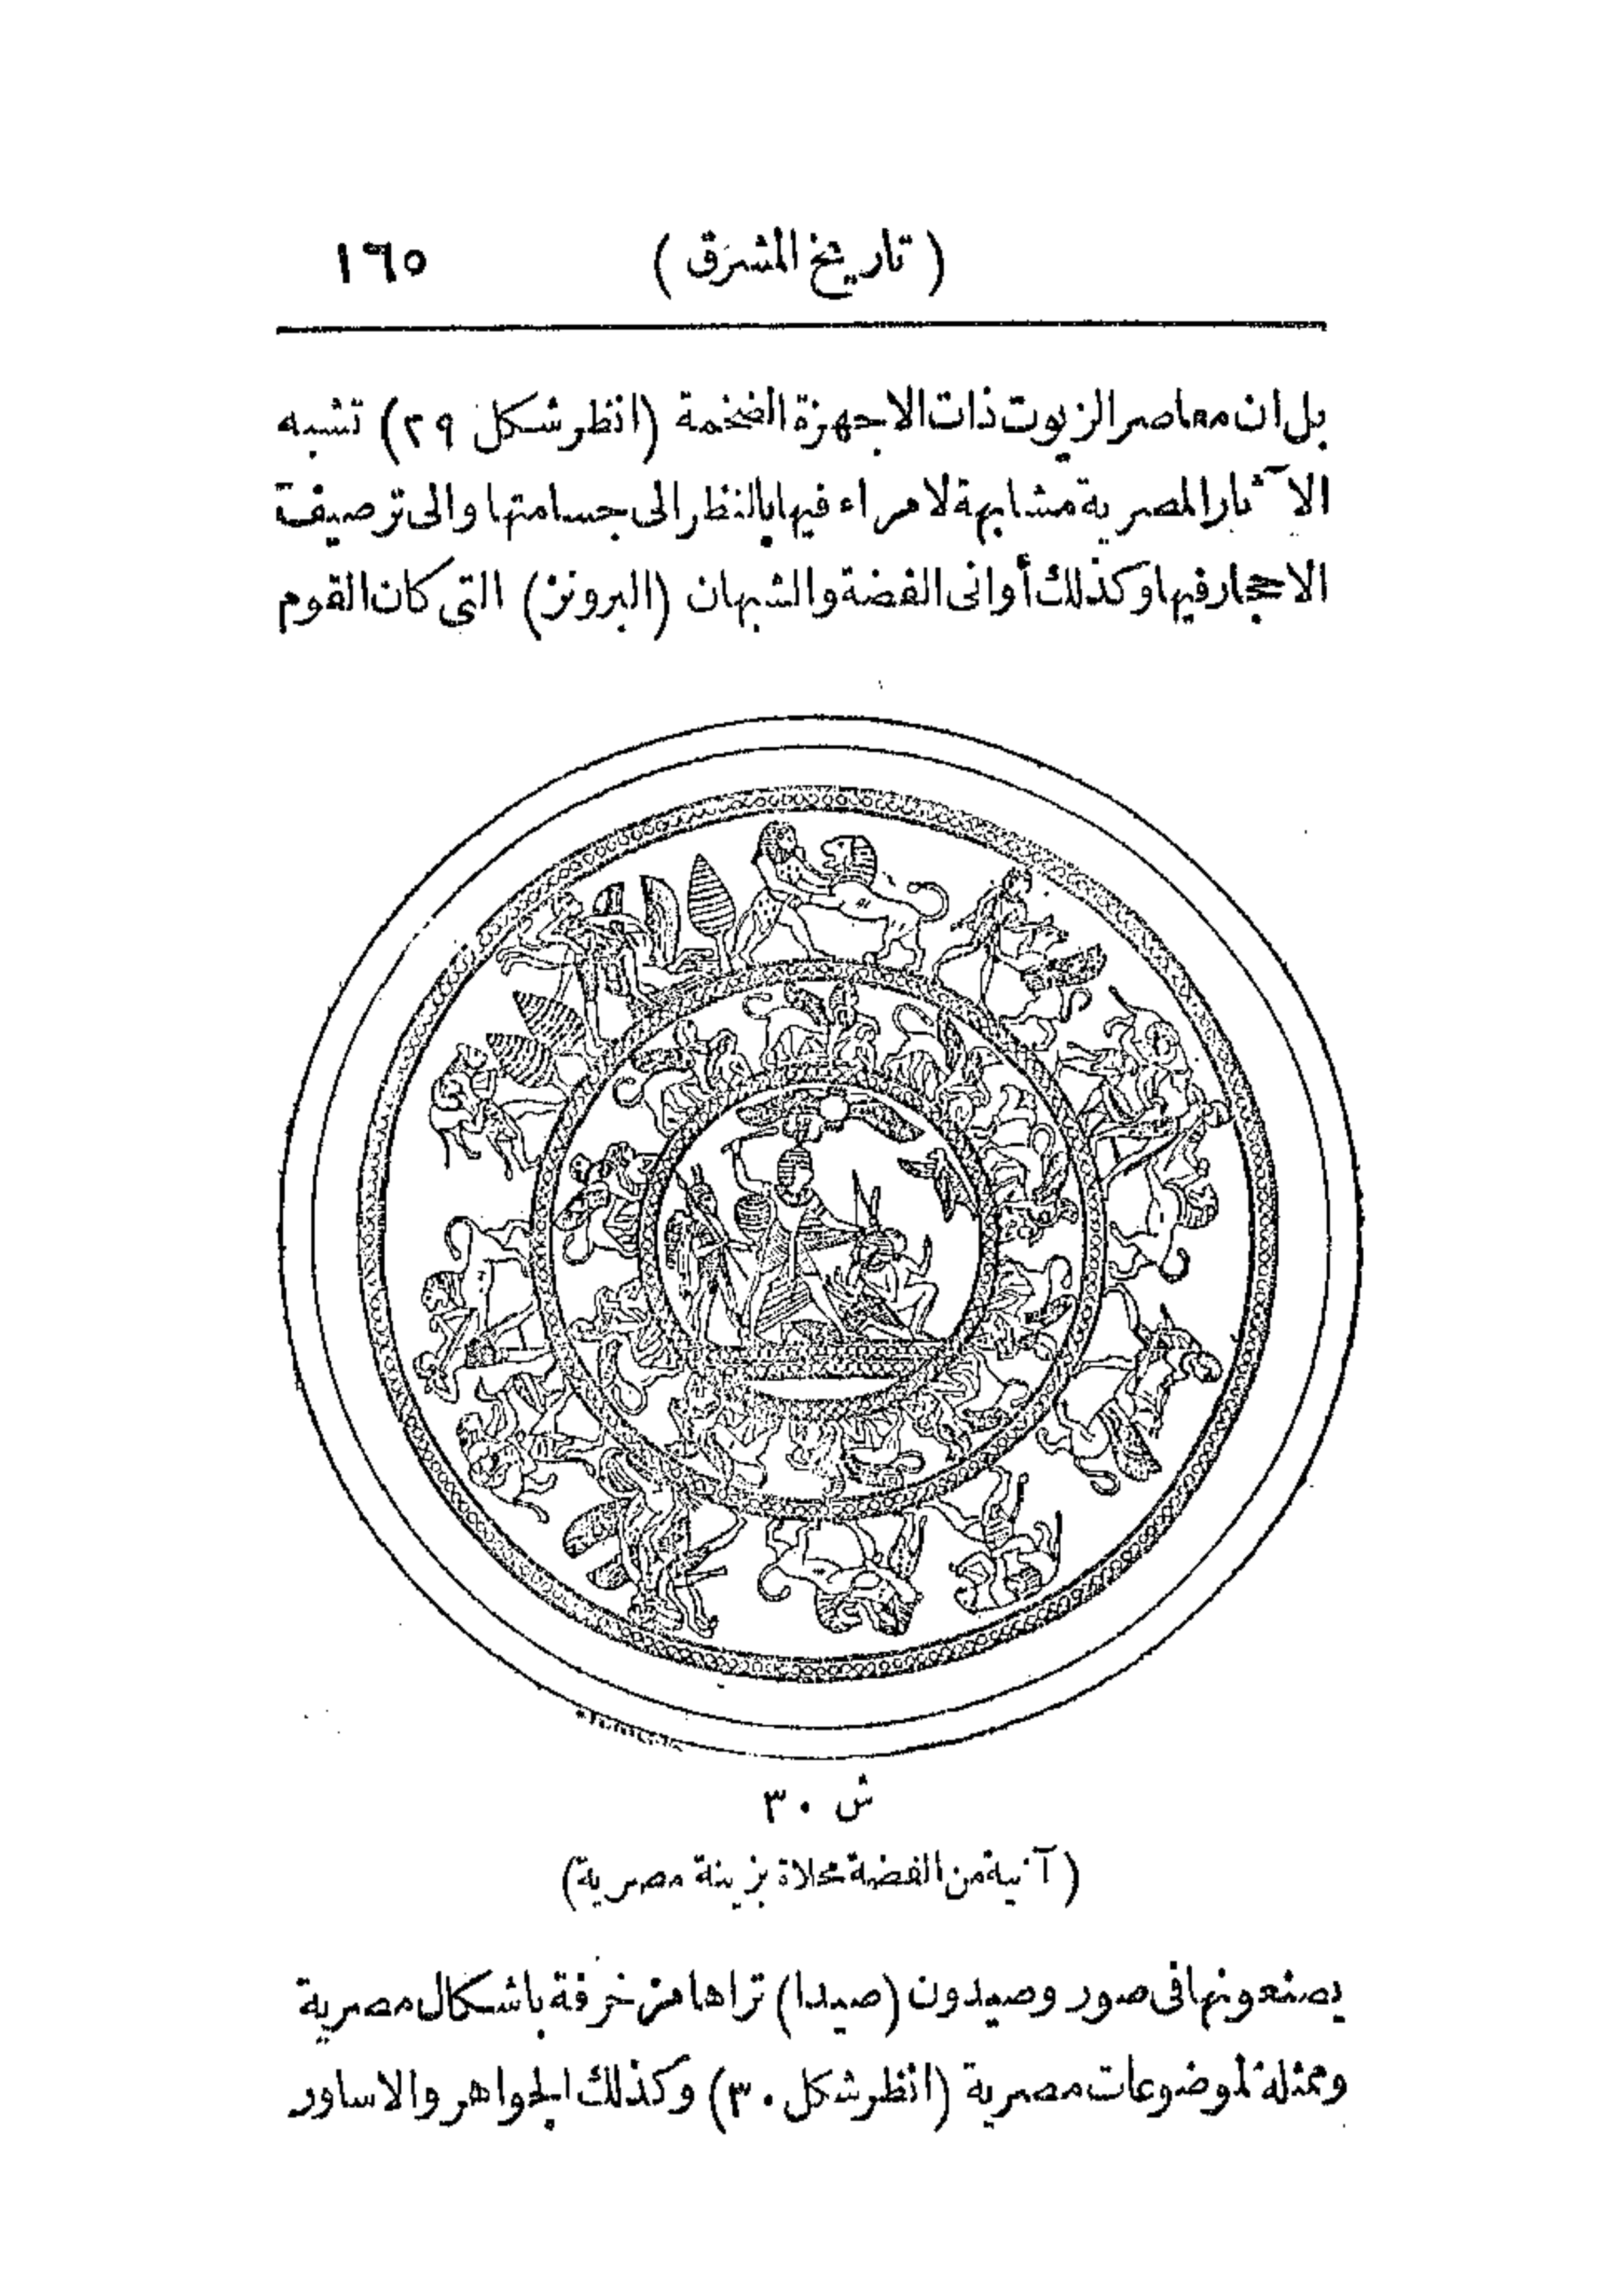 (تاريخ المشرق) ١٦٥
بل ان معاصر الزيوت ذات الاجهزة الضخمة (انظر شكل ٢٩) تشبه
الآثار المصرية مشابهة لا مراء فيها بالنظر الى جسامتها والى ترصيف
الاحجار فيها وكذلك أوانى الفضة والشبهان (البرونز) التى كان القوم
ش ٣٠
(آنية من الفضة محلاة بزينة مصرية)
يصنعونها فى صور وصيدون (صيدا) تراها مزخرفة باشكال مصرية
وممثلة لموضوعات مصرية (انظر شكل ٣٠) وكذلك الجواهر والاساور